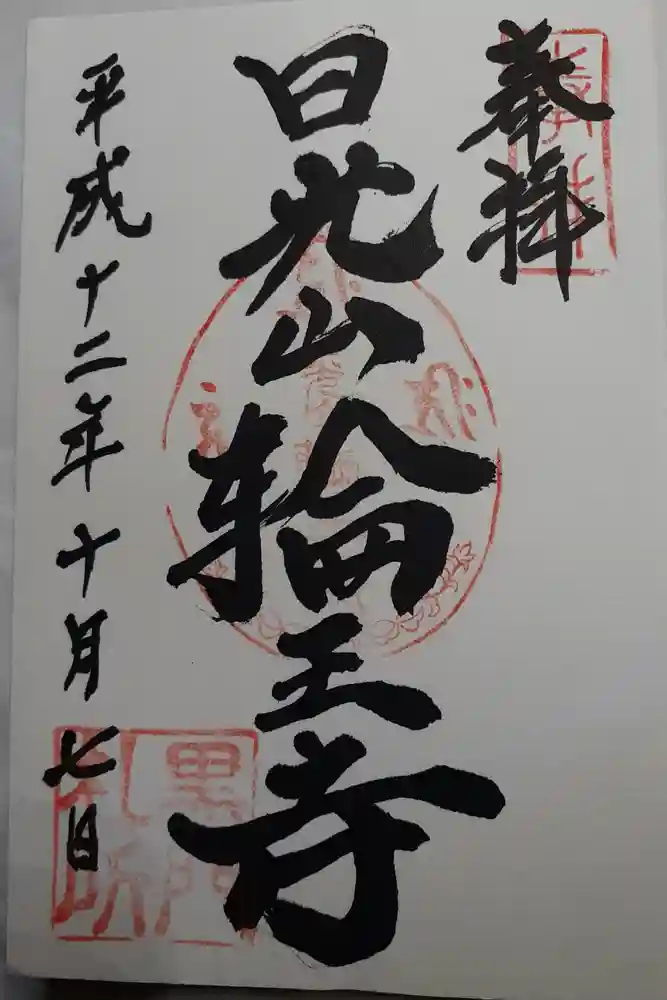 奉拝
日光山輪王寺
平成十二年十月七日
黒門